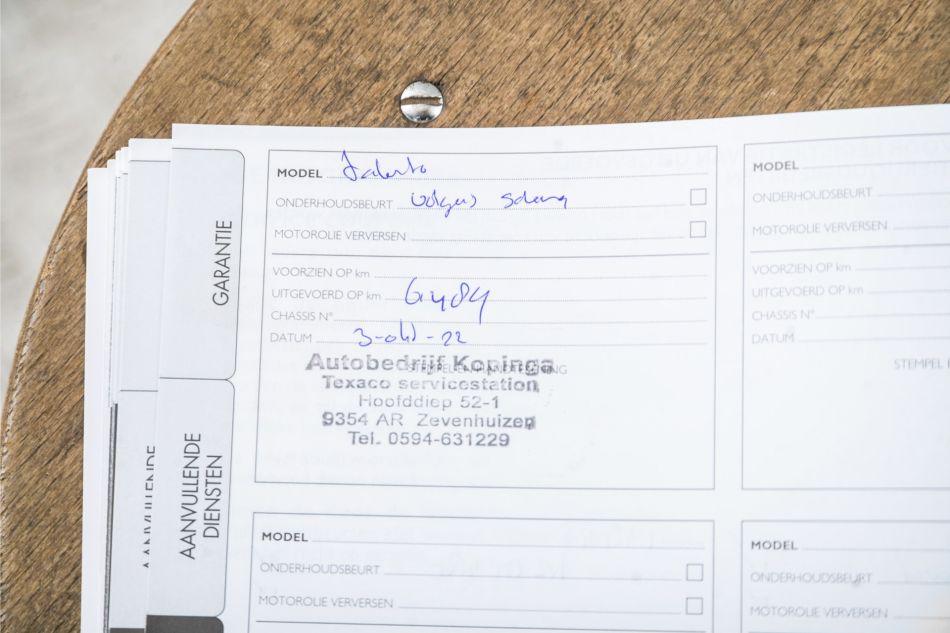 GARANTIE
AANVULLENDE
DIENSTEN
MODEL Talento
ONDERHOUDSBEURT volgens schema
MOTOROLIE VERVERSEN
VOORZIEN OP km
UITGEVOERD OP km
CHASSIS N°
DATUM 3-okt-22
STEMPEL EN HANDTEKENING
Autobedrijf Kopinga
Texaco servicestation
Hoofddiep 52-1
9354 AR Zevenhuizen
Tel. 0594-631229
MODEL
ONDERHOUDSBEURT
MOTOROLIE VERVERSEN
VOORZIEN OP km
UITGEVOERD OP km
CHASSIS N°
DATUM
STEMPEL
MODEL
ONDERHOUDSBEURT
MOTOROLIE VERVERSEN
MODEL
ONDERHOUDSBEURT
MOTOROLIE VERVERSEN